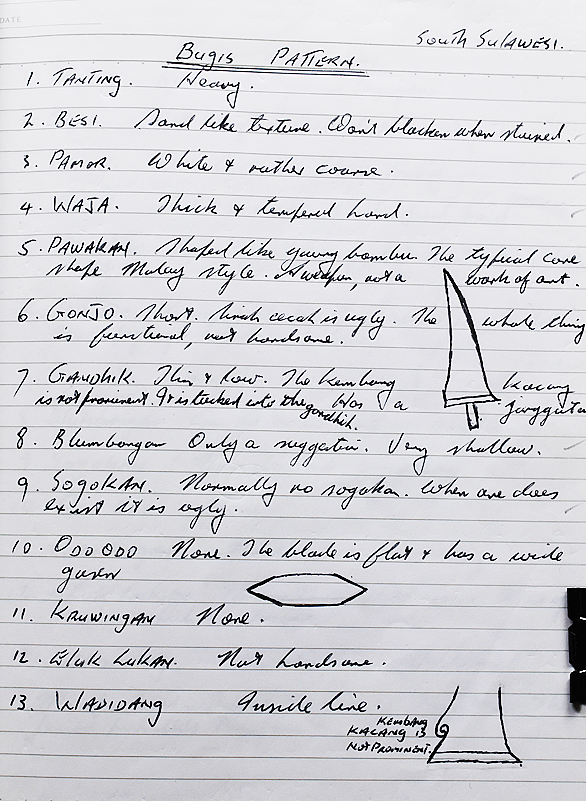 DATE
South Sulawesi.
Bugis Pattern.
1. Tanting. Heavy.
2. Besi. Sand like texture. Won't blacken when stained.
3. Pamor. White & rather course.
4. Waja. Thick & tempered hard.
5. Pawakan. Shaped like young bamboo. The typical cone
shape Malay style. A weapon, not a work of art.
6. Gonjo. Short. Sirah cecak is ugly. The whole thing
is functional, not handsome.
7. Gandhik. Thin & low. The kembang kacang
is not prominent. It is tucked into the gandhik. Has a janggutan
8. Blumbangan Only a suggestion. Very shallow.
9. Sogokan. Normally no sogokan. When one does
exist it is ugly.
10. Odo Odo None. The blade is flat & has a wide
gusen
11. Kruwingan None.
12. Eluk Lukan. Not handsome.
13. Wadidang Inside line.
KEMBANG
KACANG IS
NOT PROMINENT.